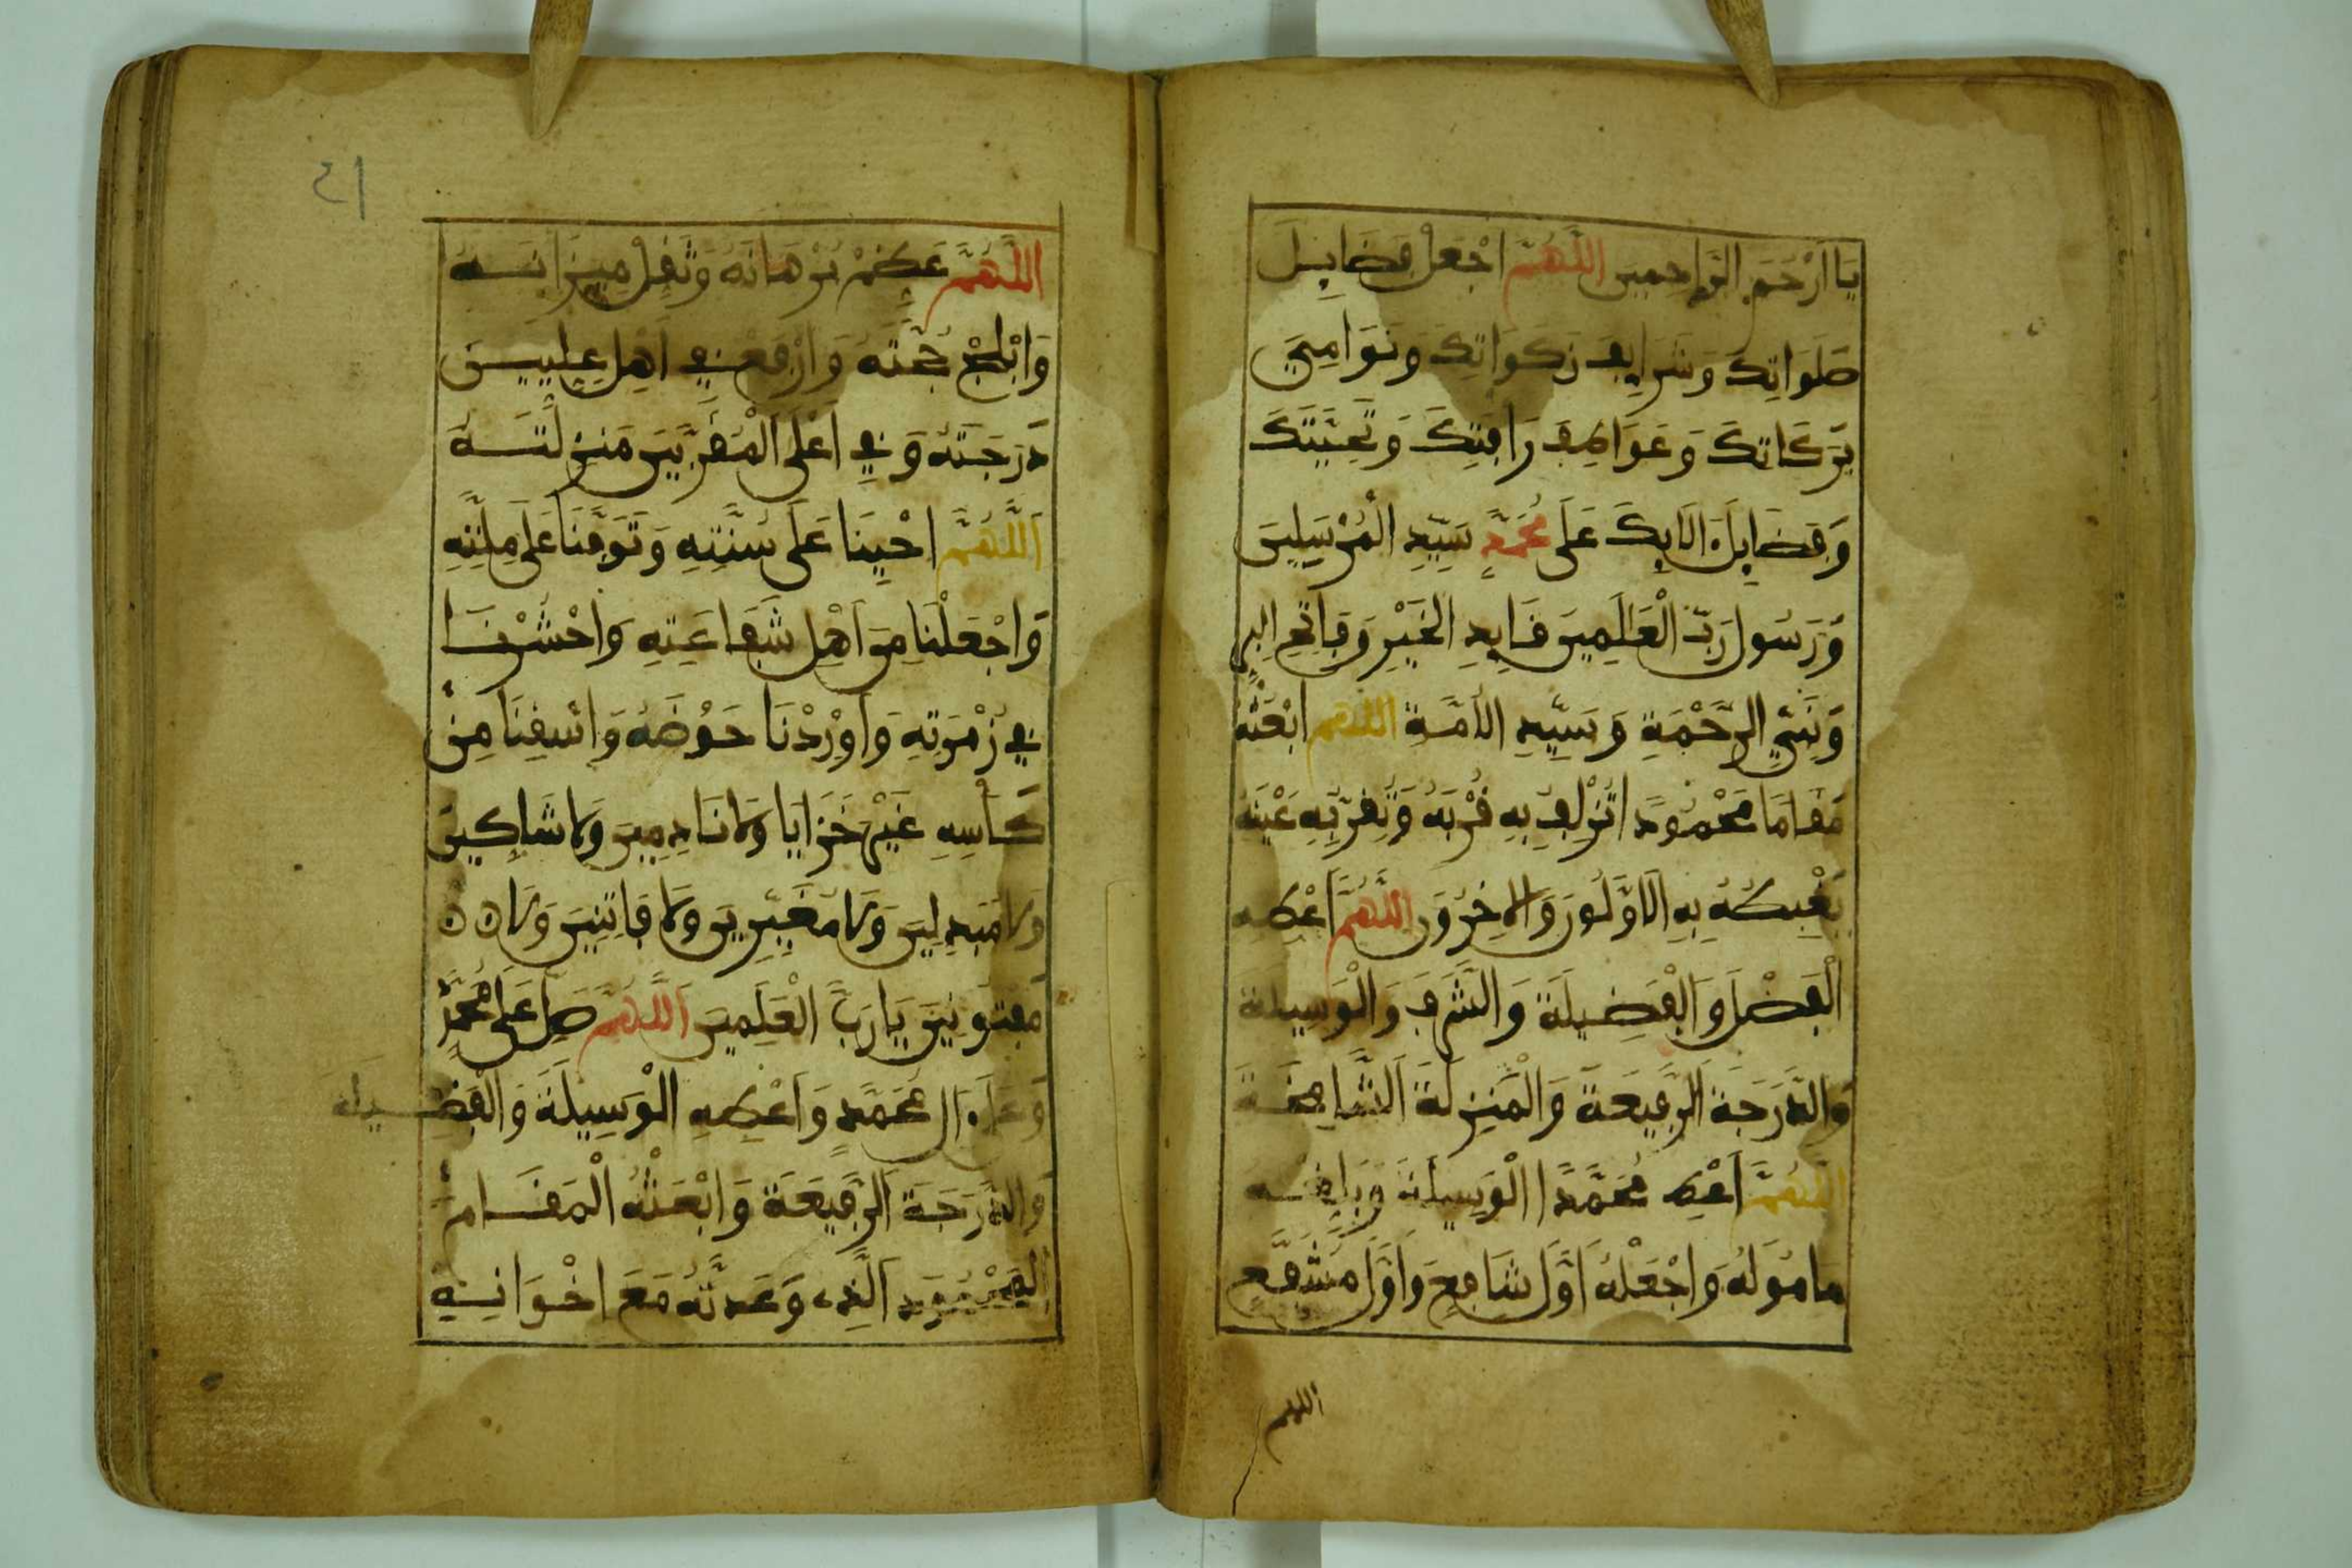 يَا اَرْحَمَ الرَّاحِمِينَ اللَّهُمَّ اجْعَلْ فَضَايِلَ
صَلَوَاتِكَ وَشَرَايِفَ زَكَوَاتِكَ وَنَوَامِيَ
بَرَكَاتِكَ وَعَوَاطِفَ رَافَتِكَ وَتَحِيَّتَكَ
وَفَضَايِلَ ءَالَايِكَ عَلَى مُحَمَّدٍ سَيِّدِ الْمُرْسَلِينَ
وَرَسُولِ رَبِّ الْعَالَمِينَ قَايِدِ الْخَيْرِ وَفَاتِحِ الْبِرِّ
وَنَبِيِّ الرَّحْمَةِ وَسَيِّدِ الْاُمَّةِ اللَّهُمَّ ابْعَثْهُ
مَقَامًا مَحْمُودًا تُزْلِفُ بِهِ قُرْبَهُ وَتُقِرُّ بِهِ عَيْنَهُ
يَغْبِطُهُ بِهِ الْاَوَّلُونَ وَالْاخِرُونَ اللَّهُمَّ اَعْطِهِ
الْفَضْلَ وَالْفَضِيلَةَ وَالشَّرَفَ وَالْوَسِيلَةَ
وَالدَّرَجَةَ الرَّفِيعَةَ وَالْمَنْزِلَةَ الشَّامِخَةَ
اللَّهُمَّ اَعْطِ مُحَمَّدًا الْوَسِيلَةَ وَبَلِّغْهُ
مَامُولَهُ وَاجْعَلْهُ اَوَّلَ شَافِعٍ وَاَوَّلَ مُشَفَّعٍ
اللهم
٤١
اللَّهُمَّ عَظِّمْ بُرْهَانَهُ وَثَقِّلْ مِيزَانَهُ
وَابْلِجْ حُجَّتَهُ وَارْفَعْ فِي اَهْلِ عِلِّيِّينَ
دَرَجَتَهُ وَفِي اَعْلَى الْمُقَرَّبِينَ مَنْزِلَتَهُ
اللَّهُمَّ احْيِنَا عَلَى سُنَّتِهِ وَتَوَفَّنَا عَلَى مِلَّتِهِ
وَاجْعَلْنَا مِنَ اَهْلِ شَفَاعَتِهِ وَاحْشُرْنَا
فِي زُمْرَتِهِ وَاَوْرِدْنَا حَوْضَهُ وَاسْقِنَا مِنْ
كَأْسِهِ غَيْرَ خَزَايَا وَلَا نَادِمِينَ وَلَا شَاكِّينَ
وَلَا مُبَدِّلِينَ وَلَا مُغَيِّرِينَ وَلَا فَاتِنِينَ وَلَا
مَفْتُونِينَ يَا رَبَّ الْعَلَمِينَ اللَّهُمَّ صَلِّ عَلَى مُحَمَّدٍ
وَعَلَى ءَالِ مُحَمَّدٍ وَاَعْطِهِ الْوَسِيلَةَ وَالْفَضِيلَةَ
وَالدَّرَجَةَ الرَّفِيعَةَ وَابْعَثْهُ الْمَقَامَ
الْمَحْمُودَ الَّذِي وَعَدتَّهُ مَعَ اخْوَانِهِ